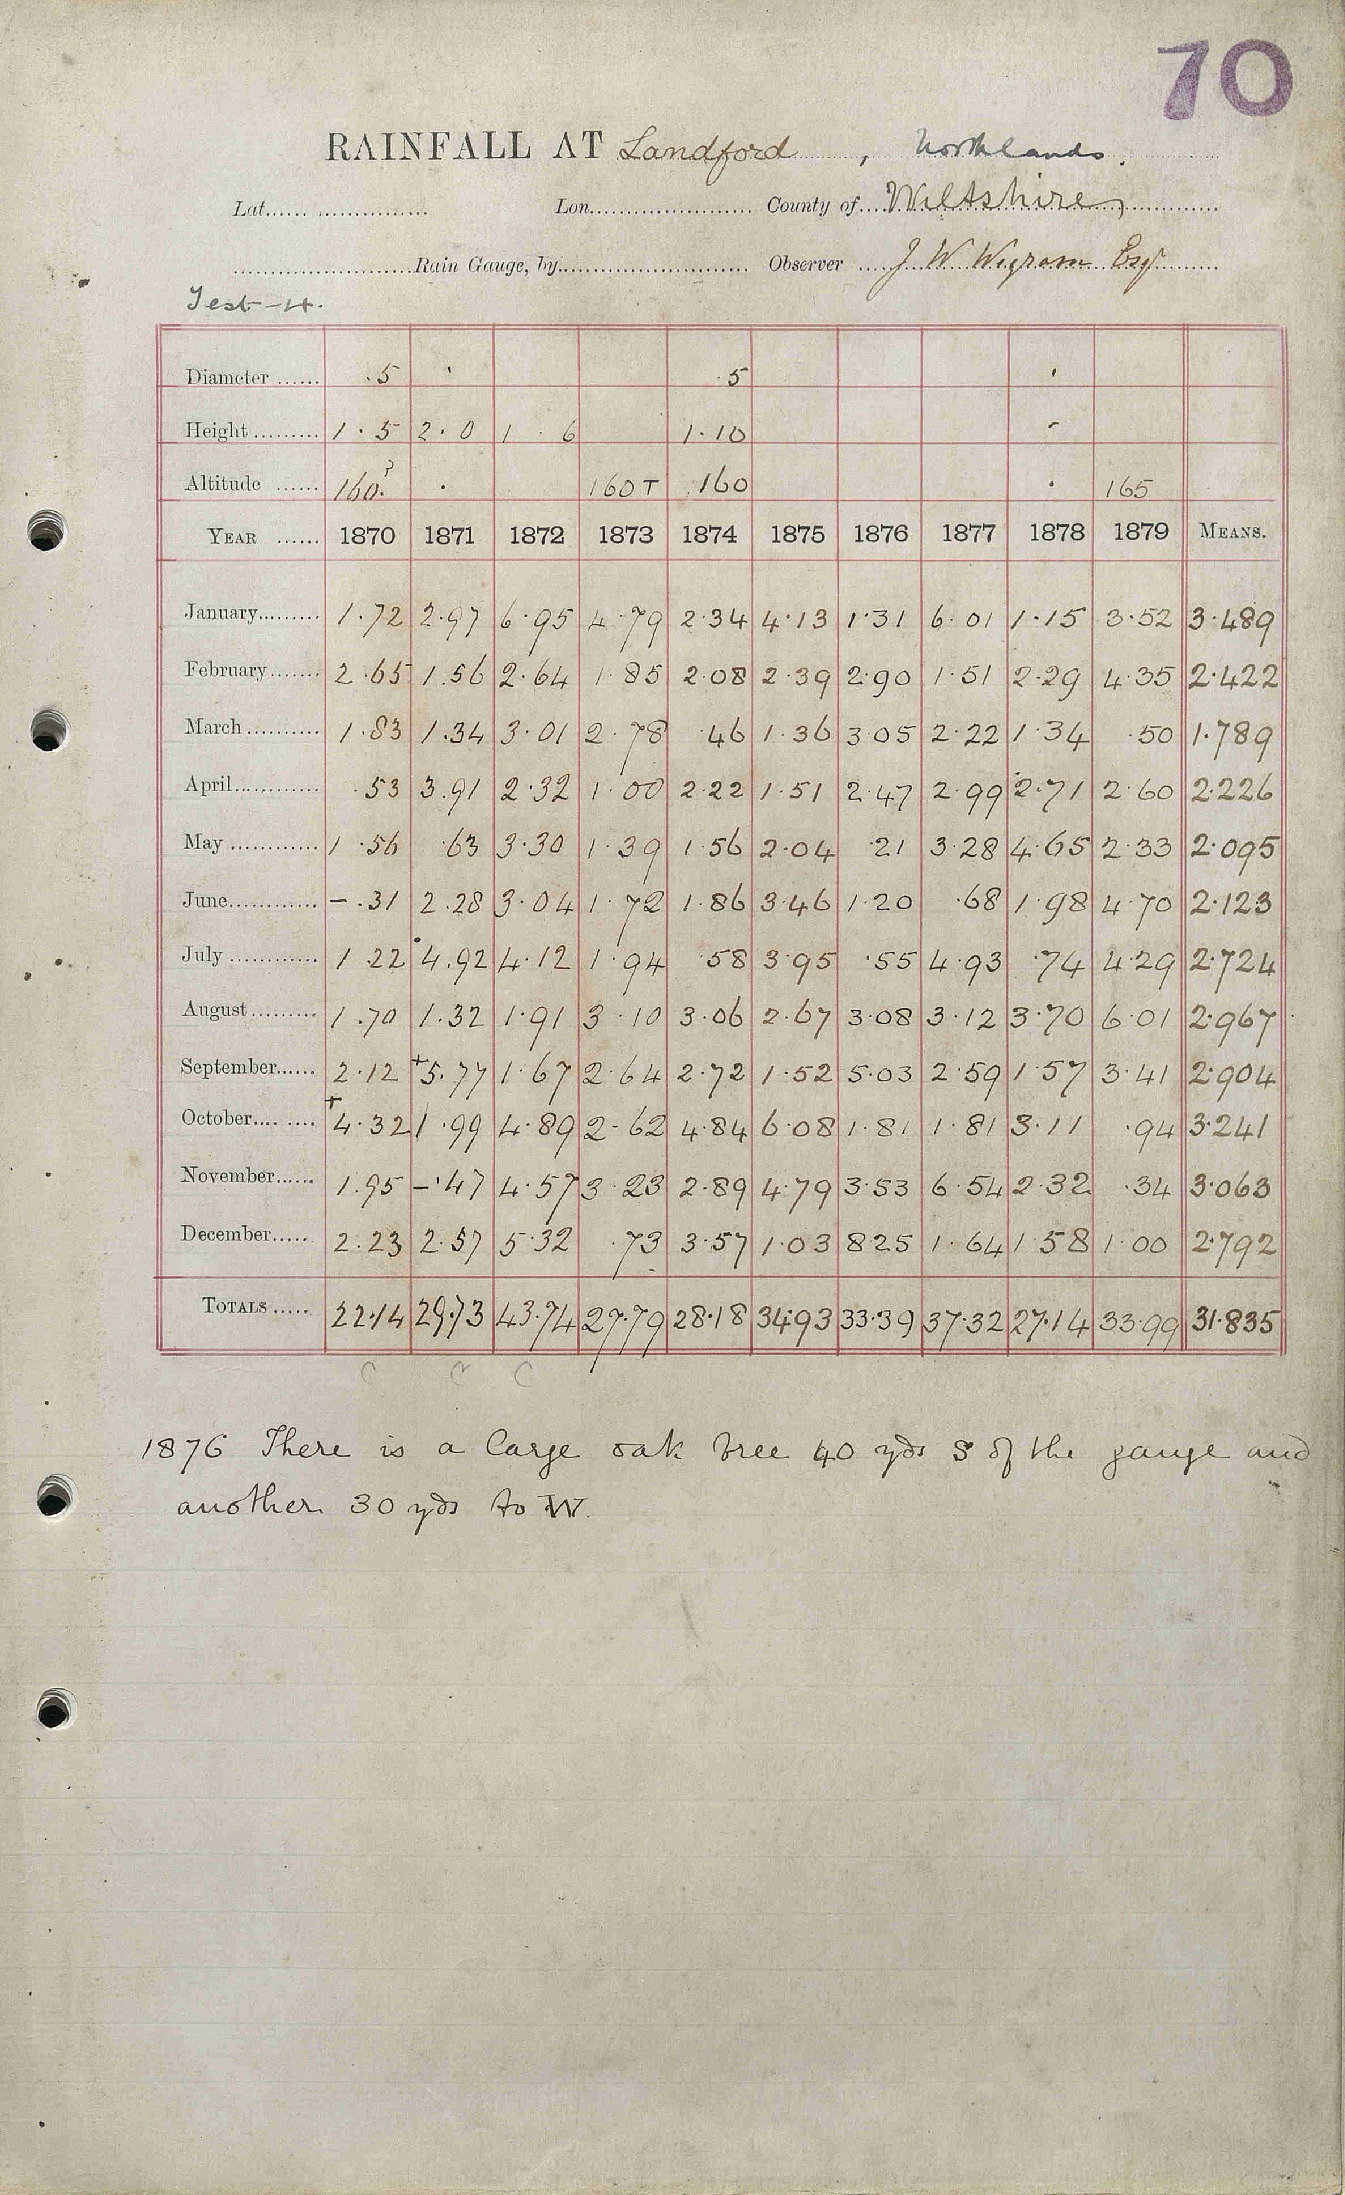 70
RAINFALL AT Landford, Northlands.
Lat. Lon. County of Wiltshire
Rain Gauge, by Observer J W Wigram Esqr
Test-4.
Diameter ...... .5 5
Height ......... 1.5 2.0 1.6 1.10
Altitude ...... 160? 160T 160 165
YEAR ...... 1870 1871 1872 1873 1874 1875 1876 1877 1878 1879 MEANS.
January......... 1.72 2.97 6.95 4.79 2.34 4.13 1.31 6.01 1.15 3.52 3.489
February....... 2.65 1.56 2.64 1.85 2.08 2.39 2.90 1.51 2.29 4.35 2.422
March .......... 1.83 1.34 3.01 2.78 .46 1.36 3.05 2.22 1.34 .50 1.789
April............ .53 3.91 2.32 1.00 2.22 1.51 2.47 2.99 2.71 2.60 2.226
May ............ 1.56 .63 3.30 1.39 1.56 2.04 .21 3.28 4.65 2.33 2.095
June............ -.31 2.28 3.04 1.72 1.86 3.46 1.20 .68 1.98 4.70 2.123
July ............ 1.22 4.92 4.12 1.94 .58 3.95 .55 4.93 .74 4.29 2.724
August......... 1.70 1.32 1.91 3.10 3.06 2.67 3.08 3.12 3.70 6.01 2.967
September...... 2.12 +5.77 1.67 2.64 2.72 1.52 5.03 2.59 1.57 3.41 2.904
October.... .... +4.32 1.99 4.89 2.62 4.84 6.08 1.81 1.81 3.11 .94 3.241
November...... 1.95 -.47 4.57 3.23 2.89 4.79 3.53 6.54 2.32 .34 3.063
December..... 2.23 2.57 5.32 .73 3.57 1.03 8.25 1.64 1.58 1.00 2.792
TOTALS ..... 22.14 29.73 43.74 27.79 28.18 34.93 33.39 37.32 27.14 33.99 31.835
C C C
1876 There is a large oak tree 40 yds S of the gauge and
another 30 yds to W.